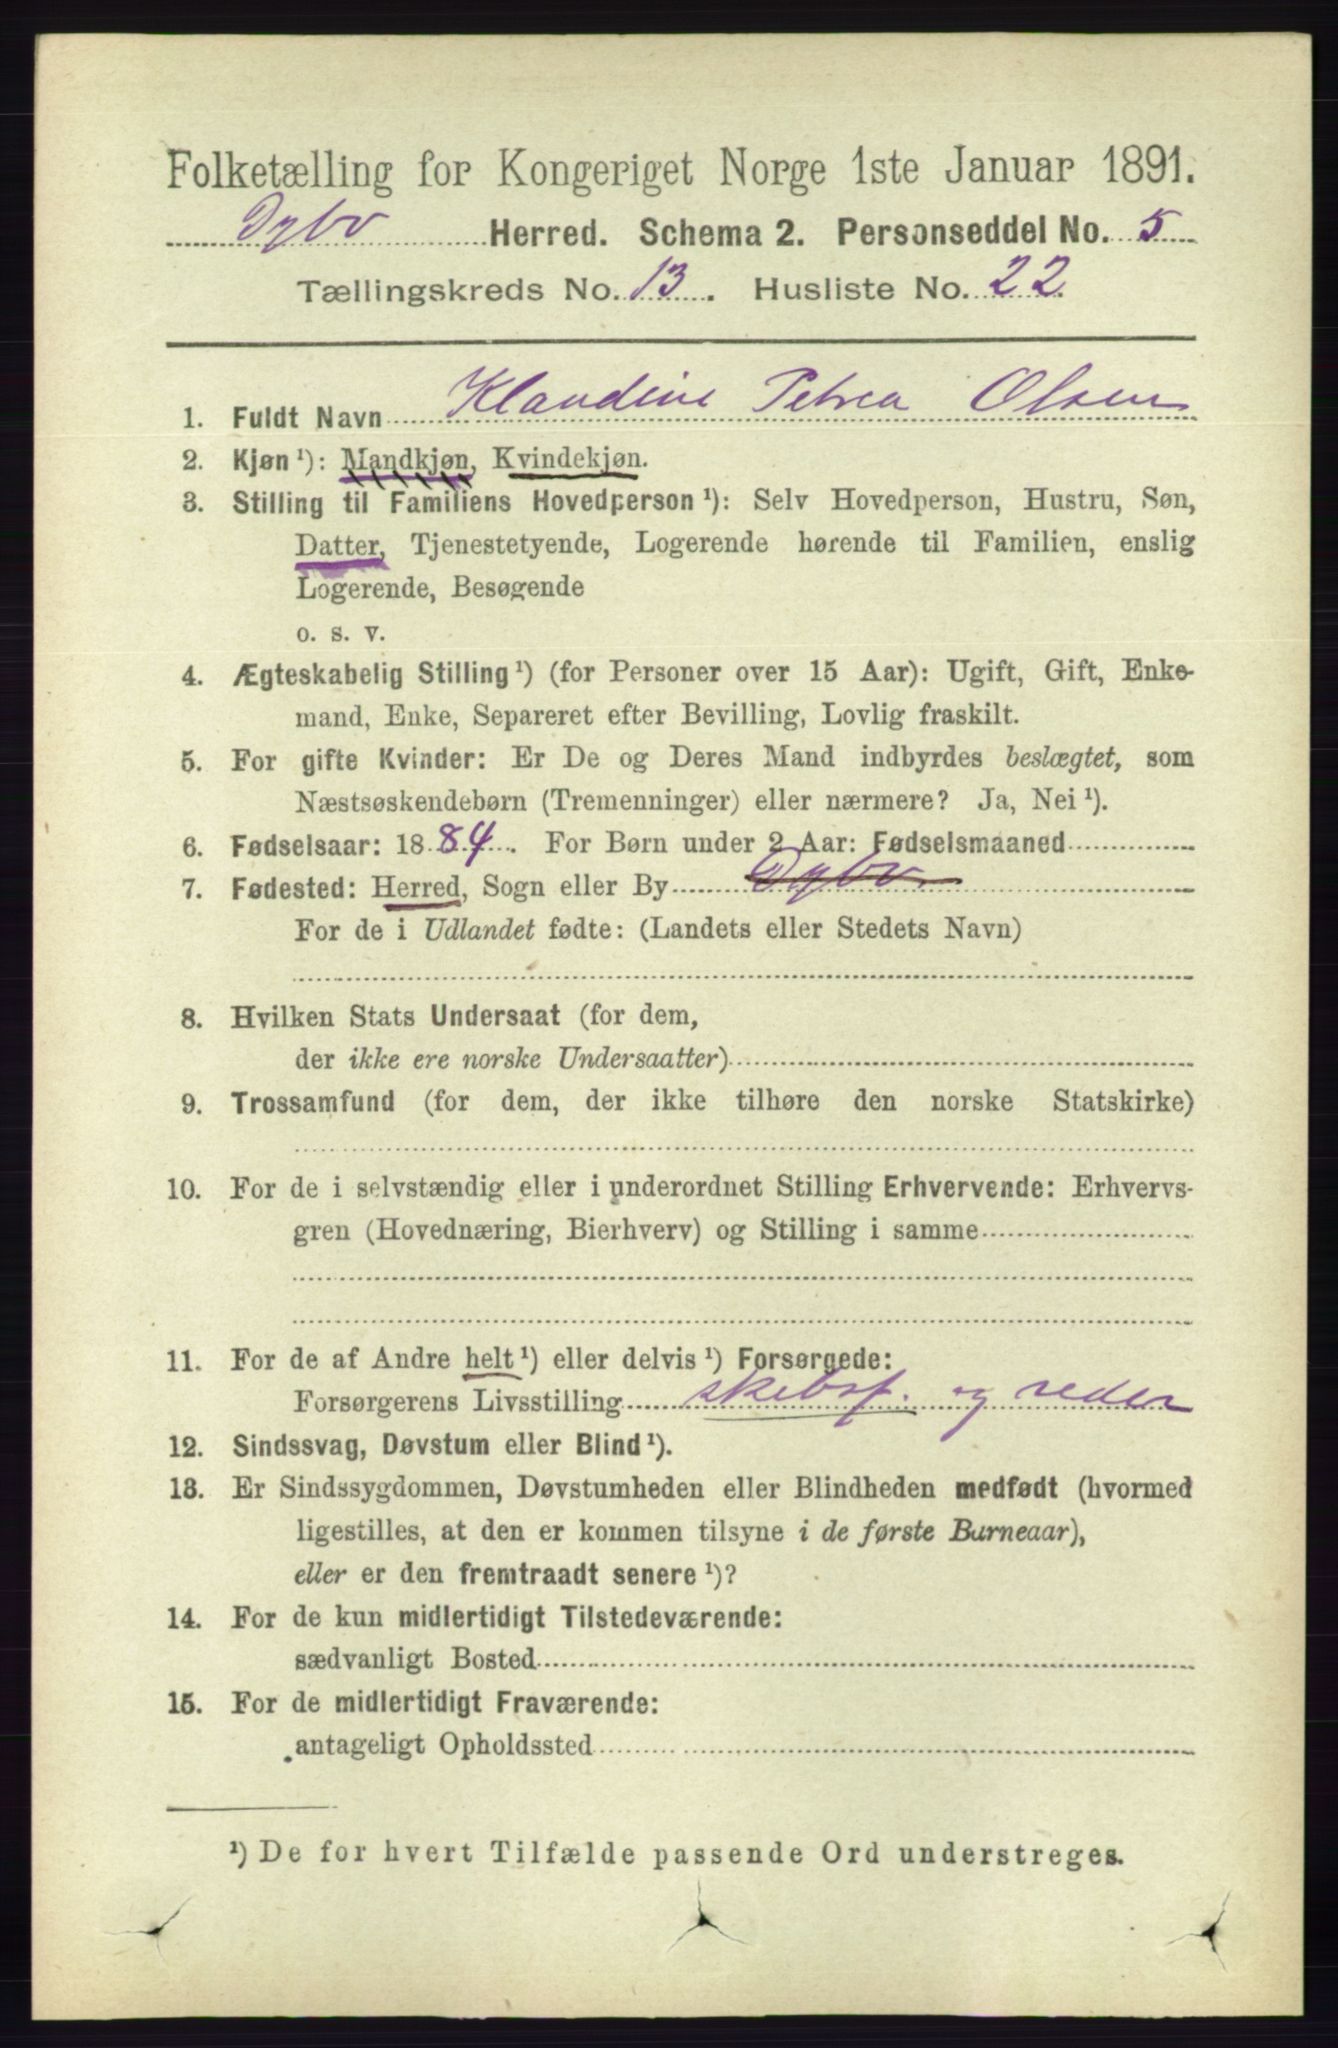 Folketælling for Kongeriget Norge 1ste Januar 1891.
Dybv Herred. Schema 2. Personseddel No. 5
Tællingskreds No. 13. Husliste No. 22.
1. Fuldt Navn Klaudine Petrea Olsen
2. Kjøn ¹): Mandkjøn, Kvindekjøn.
3. Stilling til Familiens Hovedperson ¹): Selv Hovedperson, Hustru, Søn,
Datter, Tjenestetyende, Logerende hørende til Familien, enslig
Logerende, Besøgende
o. s. v.
4. Ægteskabelig Stilling ¹) (for Personer over 15 Aar): Ugift, Gift, Enke-
mand, Enke, Separeret efter Bevilling, Lovlig fraskilt.
5. For gifte Kvinder: Er De og Deres Mand indbyrdes beslægtet, som
Næstsøskendebørn (Tremenninger) eller nærmere? Ja, Nei ¹).
6. Fødselsaar: 1884. For Børn under 2 Aar: Fødselsmaaned
7. Fødested: Herred, Sogn eller By Dybv.
For de i Udlandet fødte: (Landets eller Stedets Navn)
8. Hvilken Stats Undersaat (for dem,
der ikke ere norske Undersaatter)
9. Trossamfund (for dem, der ikke tilhøre den norske Statskirke)
10. For de i selvstændig eller i underordnet Stilling Erhvervende: Erhvervs-
gren (Hovednæring, Bierhverv) og Stilling i samme
11. For de af Andre helt ¹) eller delvis ¹) Forsørgede:
Forsørgerens Livsstilling skebsf. og reder
12. Sindssvag, Døvstum eller Blind ¹).
13. Er Sindssygdommen, Døvstumheden eller Blindheden medfødt (hvormed
ligestilles, at den er kommen tilsyne i de første Barneaar),
eller er den fremtraadt senere ¹)?
14. For de kun midlertidigt Tilstedeværende:
sædvanligt Bosted
15. For de midlertidigt Fraværende:
antageligt Opholdssted
¹) De for hvert Tilfælde passende Ord understreges.